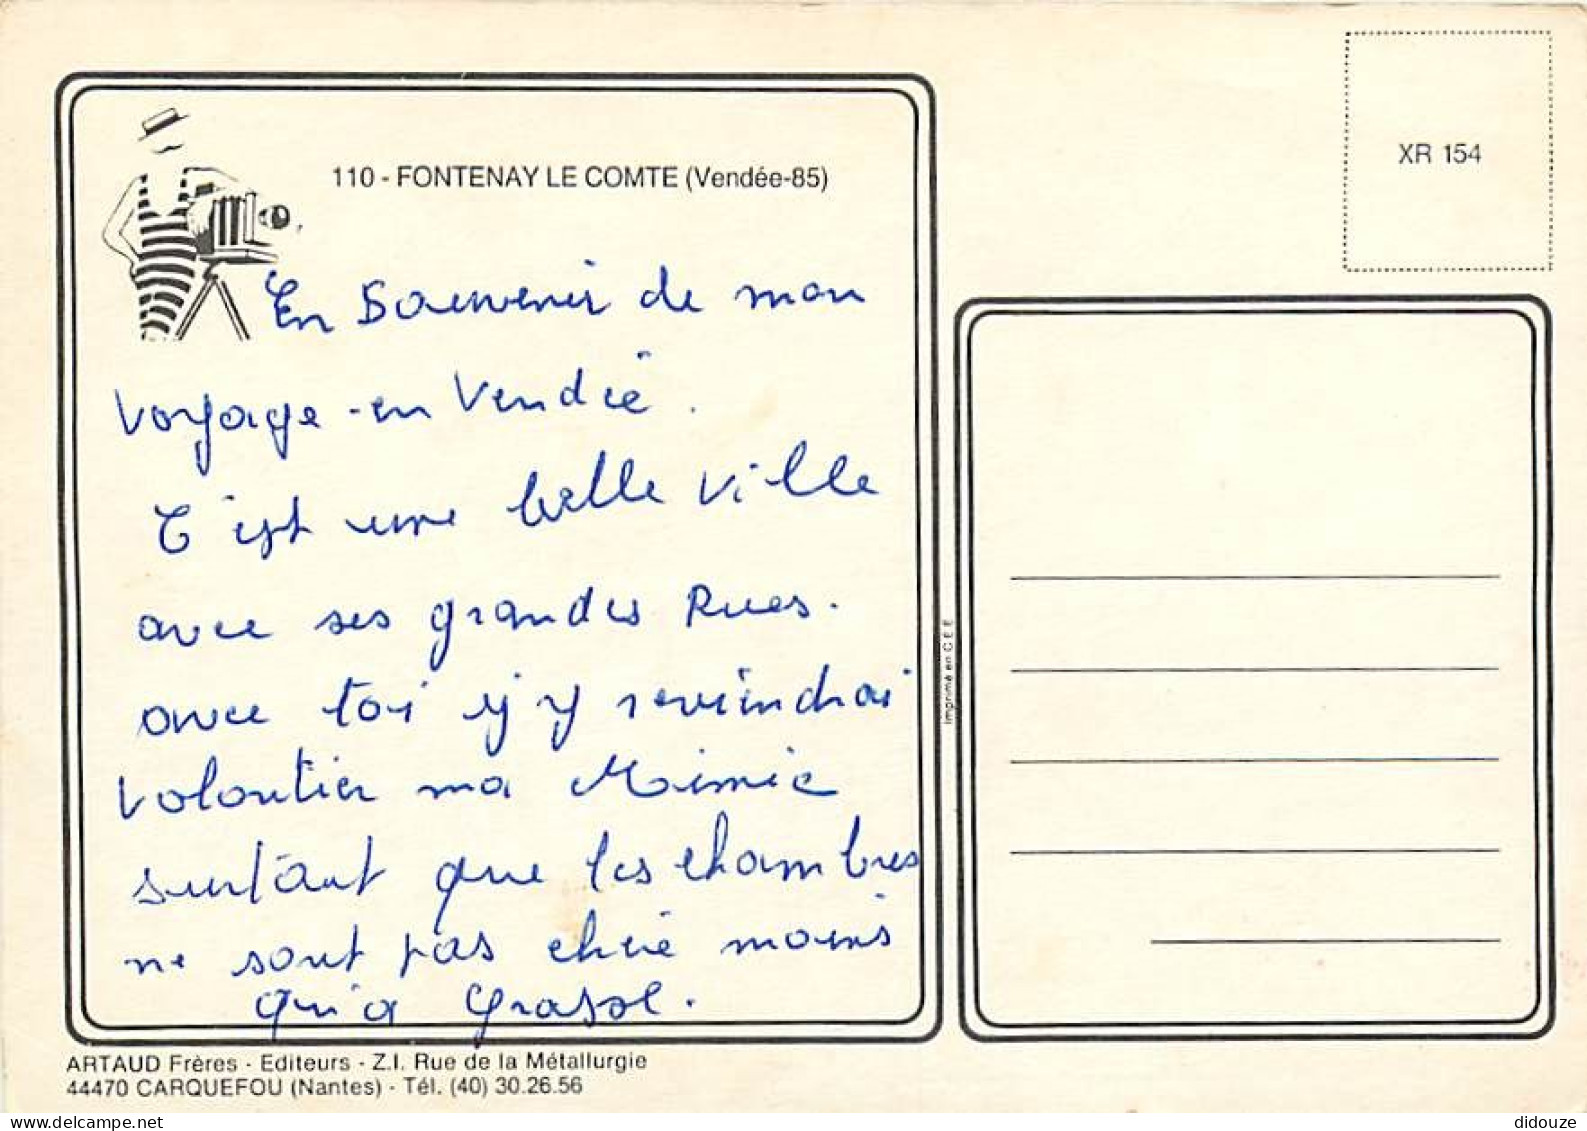 110 - FONTENAY LE COMTE (Vendée-85)
XR 154
En Souvenir de mon
voyage en Vendée.
C'est une belle ville
avec ses grandes Rues.
avec toi j'y reviendrai
volontier ma Mimie
surtout que les chambres
ne sont pas chère moins
qu'a Grasse.
Imprimé en C.E.E.
ARTAUD Frères - Editeurs - Z.I. Rue de la Métallurgie
44470 CARQUEFOU (Nantes) - Tél. (40) 30.26.56
delcampe.net
didouze